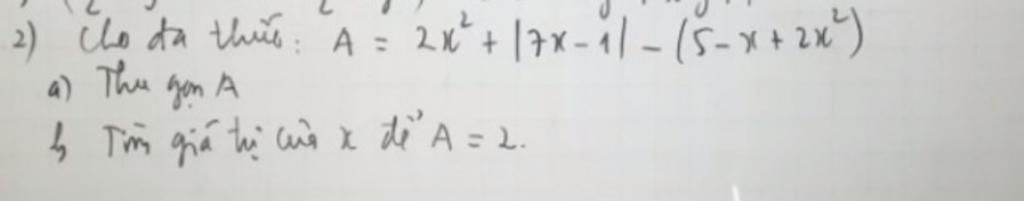 2) Cho đa thức: A = 2x² + |7x - 1| - (5 - x + 2x²)
a) Thu gọn A
b) Tìm giá trị của x để A = 2.